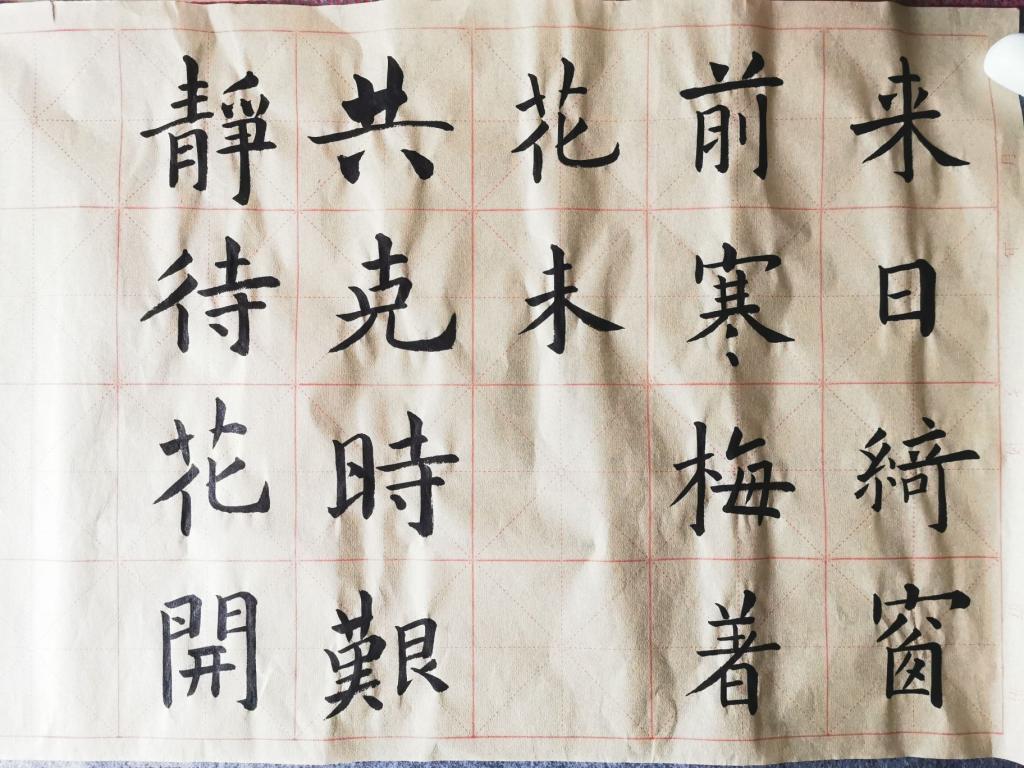 来日綺窗
前寒梅着
花未
共克時艱
靜待花開